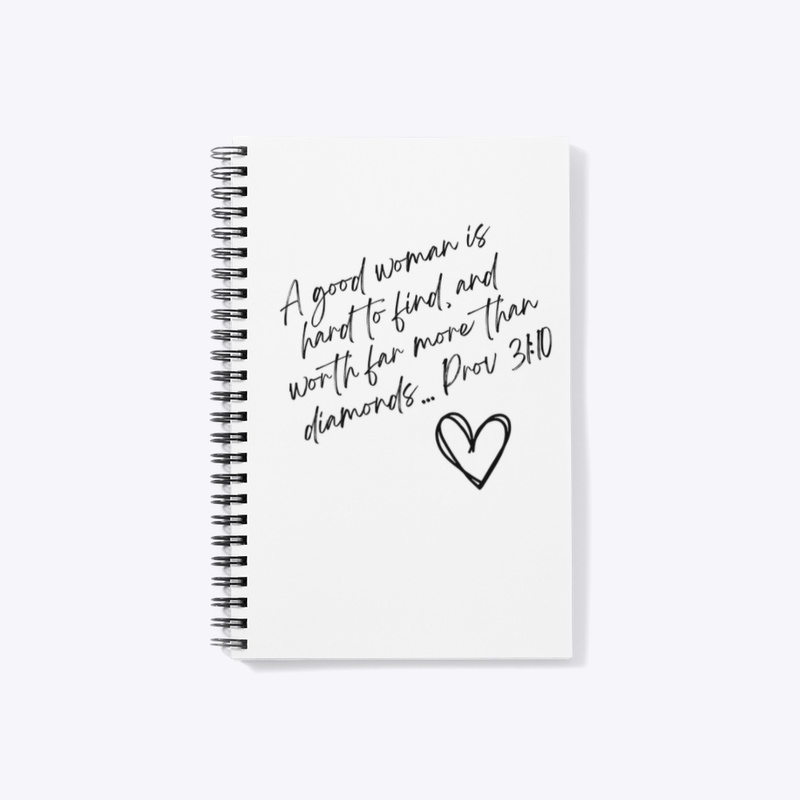 A good woman is
hard to find, and
worth far more than
diamonds... Prov 31:10